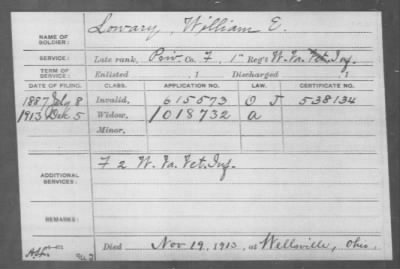 NAME OF SOLDIER: Lowary, William E.
SERVICE: Late rank, Priv. Co. F, 1" Reg't W. Va. Vet. Inf.
TERM OF SERVICE: Enlisted , 1 Discharged , 1
DATE OF FILING. CLASS. APPLICATION NO. LAW. CERTIFICATE NO.
1887 July 8 Invalid, 615573 O J 538134
1913 Dec 5 Widow, 1018732 a
Minor,
ADDITIONAL SERVICES: F 2 W. Va. Vet. Inf.
REMARKS:
Died Nov 19, 1913, at Wellsville, Ohio.